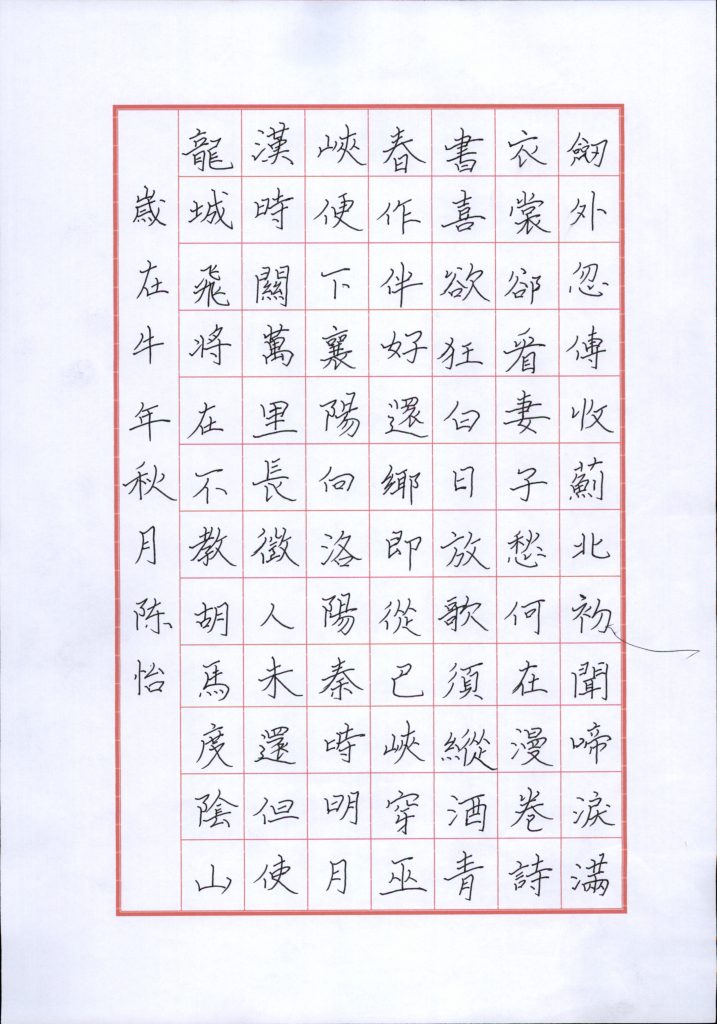 劒外忽傳收薊北初聞啼淚滿
衣裳郤看妻子愁何在漫卷詩
書喜欲狂白日放歌須縱酒青
春作伴好還鄉即從巴峽穿巫
峽便下襄陽向洛陽秦時明月
漢時關萬里長徵人未還但使
龍城飛將在不教胡馬度陰山
歲在牛年秋月陈怡